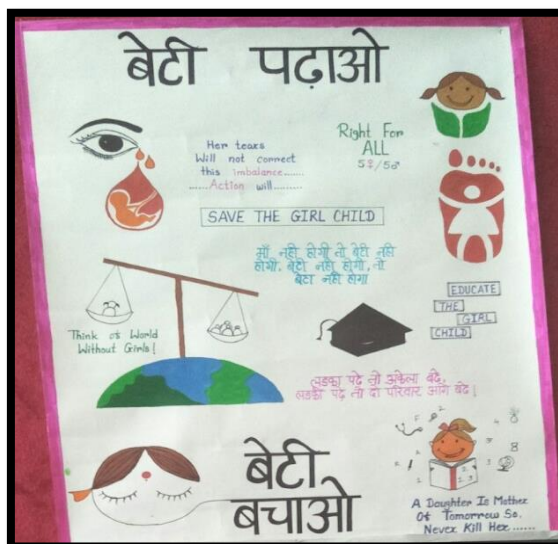 बेटी पढ़ाओ
Her tears
Will not correct
this imbalance......
......Action will.........
Right For
ALL
5♀/5♂
SAVE THE GIRL CHILD
माँ नही होगी तो बेटी नही
होगी, बेटी नही होगी, तो
बेटा नही होगा
EDUCATE
THE
GIRL
CHILD
Think of World
Without Girls!
लड़का पढ़े तो अकेला बढ़े,
लडकी पढ़े तो दो परिवार आगे बढ़े!
बेटी
बचाओ
A Daughter Is Mother
Of Tomorrow So.
Never Kill Her ......